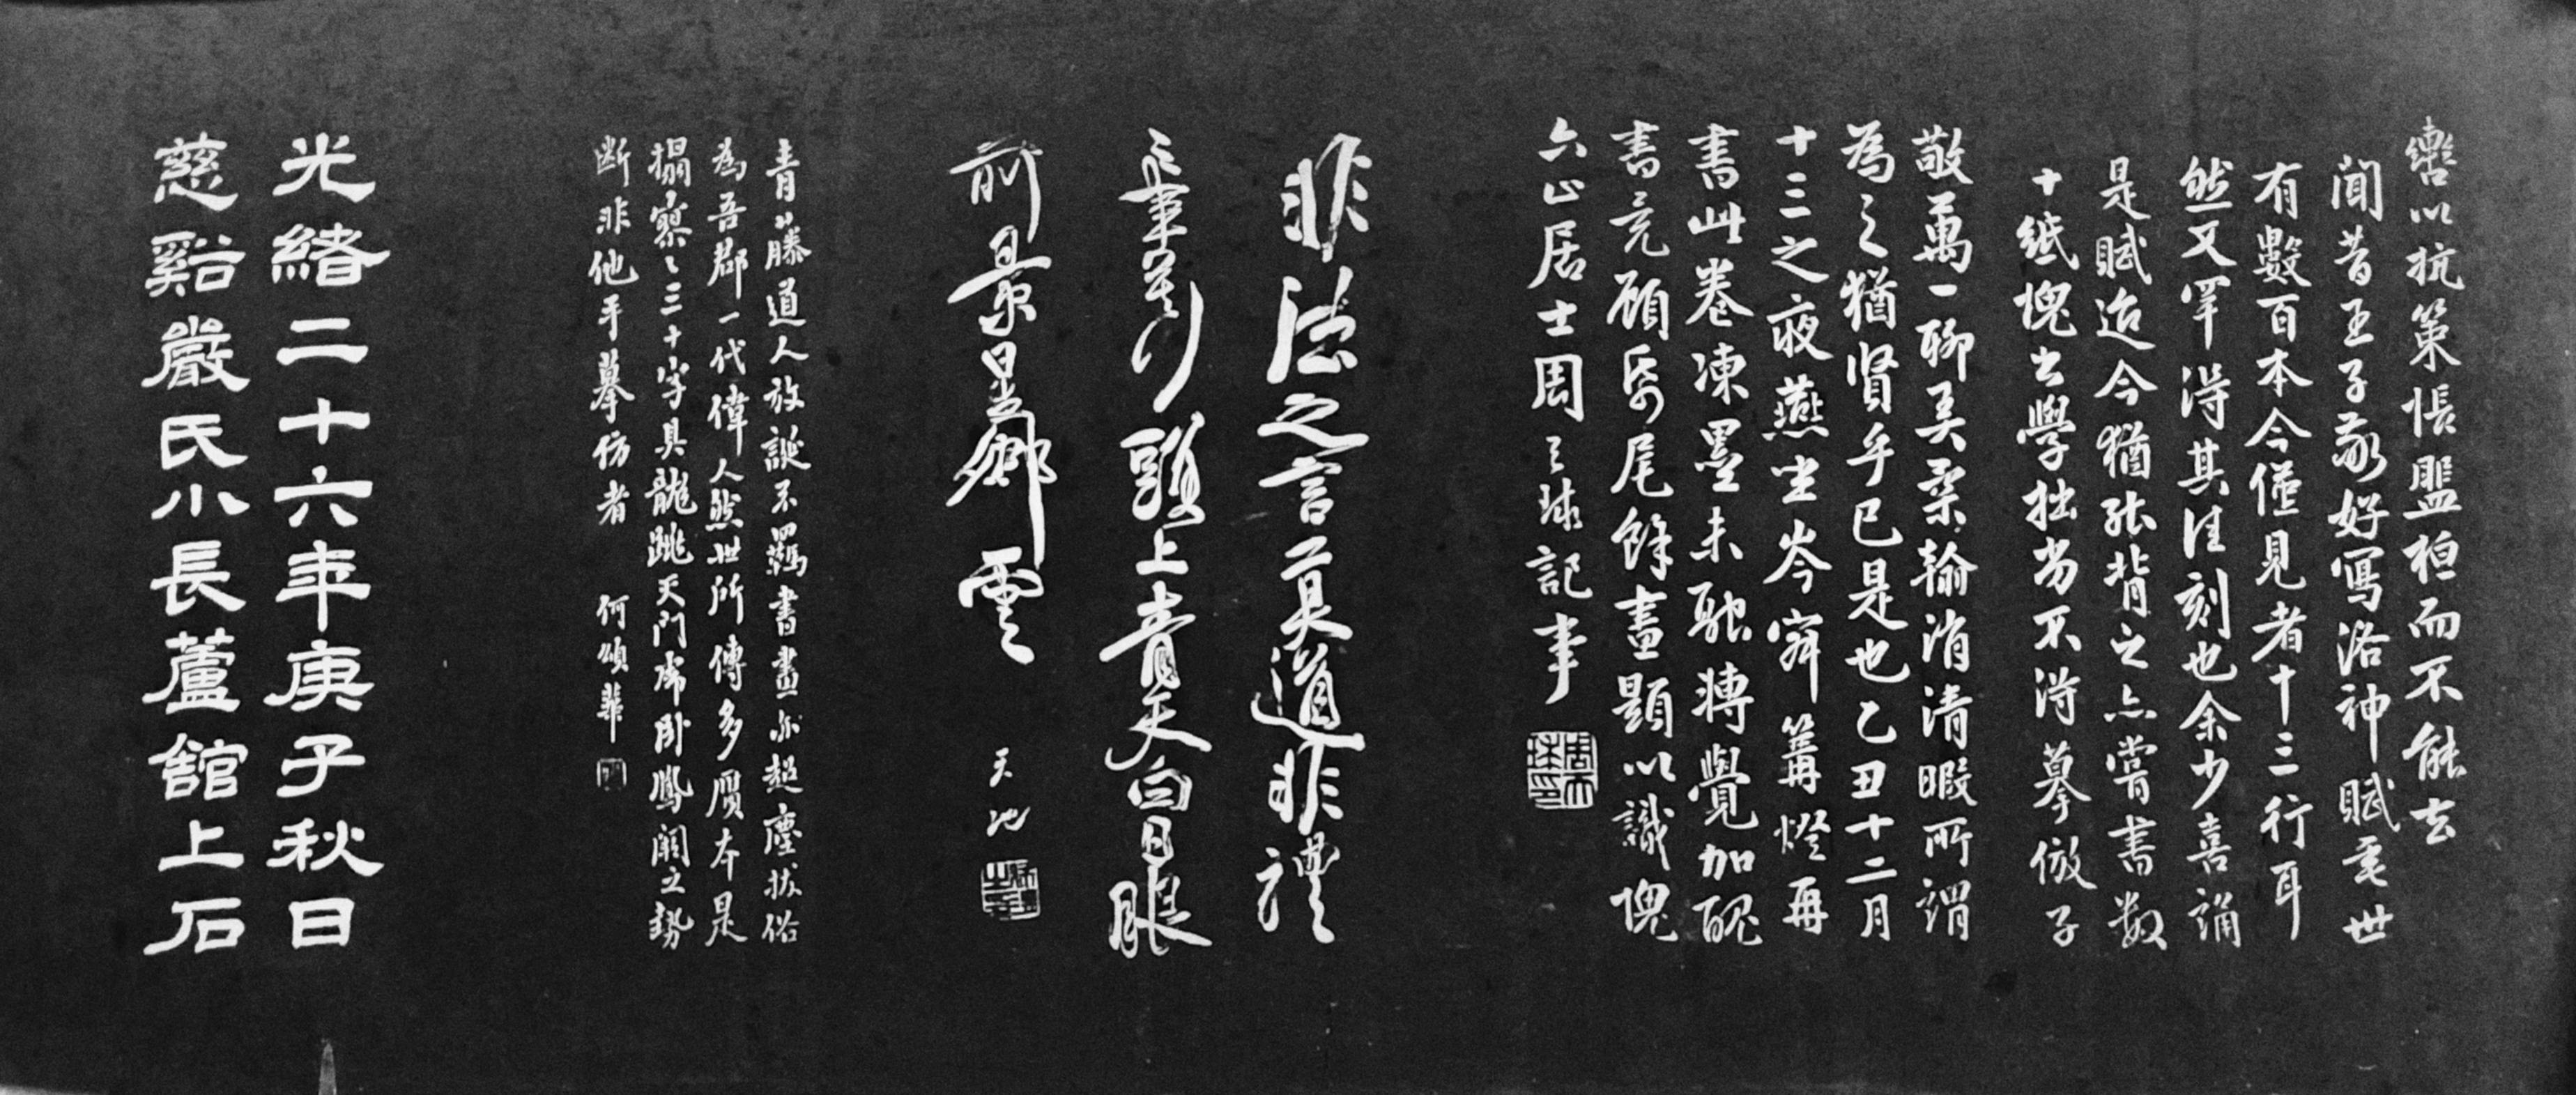 轡以抗策悵盤桓而不能去
聞昔王子敬好寫洛神賦去世
有數百本今僅見者十三行耳
然又罕得其佳刻也余少喜誦
是賦迨今猶能背之亦嘗書數
十紙愧書學拙劣不得摹倣子
敬萬一聊弄柔翰消清暇所謂
為之猶賢乎已是也乙丑十二月
十三之夜燕坐岑寂篝燈再
書此卷凍墨未融轉覺加醜
書竟顧卷尾餘畫題以識愧
六止居士周天球記事
非法之言莫道非禮
之事莫行頭上青天白日眼
前景星卿雲
天池
青藤道人放誕不羈書畫亦超塵拔俗
為吾郡一代偉人然世所傳多贋本是
搨寥寥三十字具龍跳天門虎臥鳳闕之勢
斷非他手摹仿者 何頌華
光緒二十六年庚子秋日
慈谿嚴氏小長蘆館上石